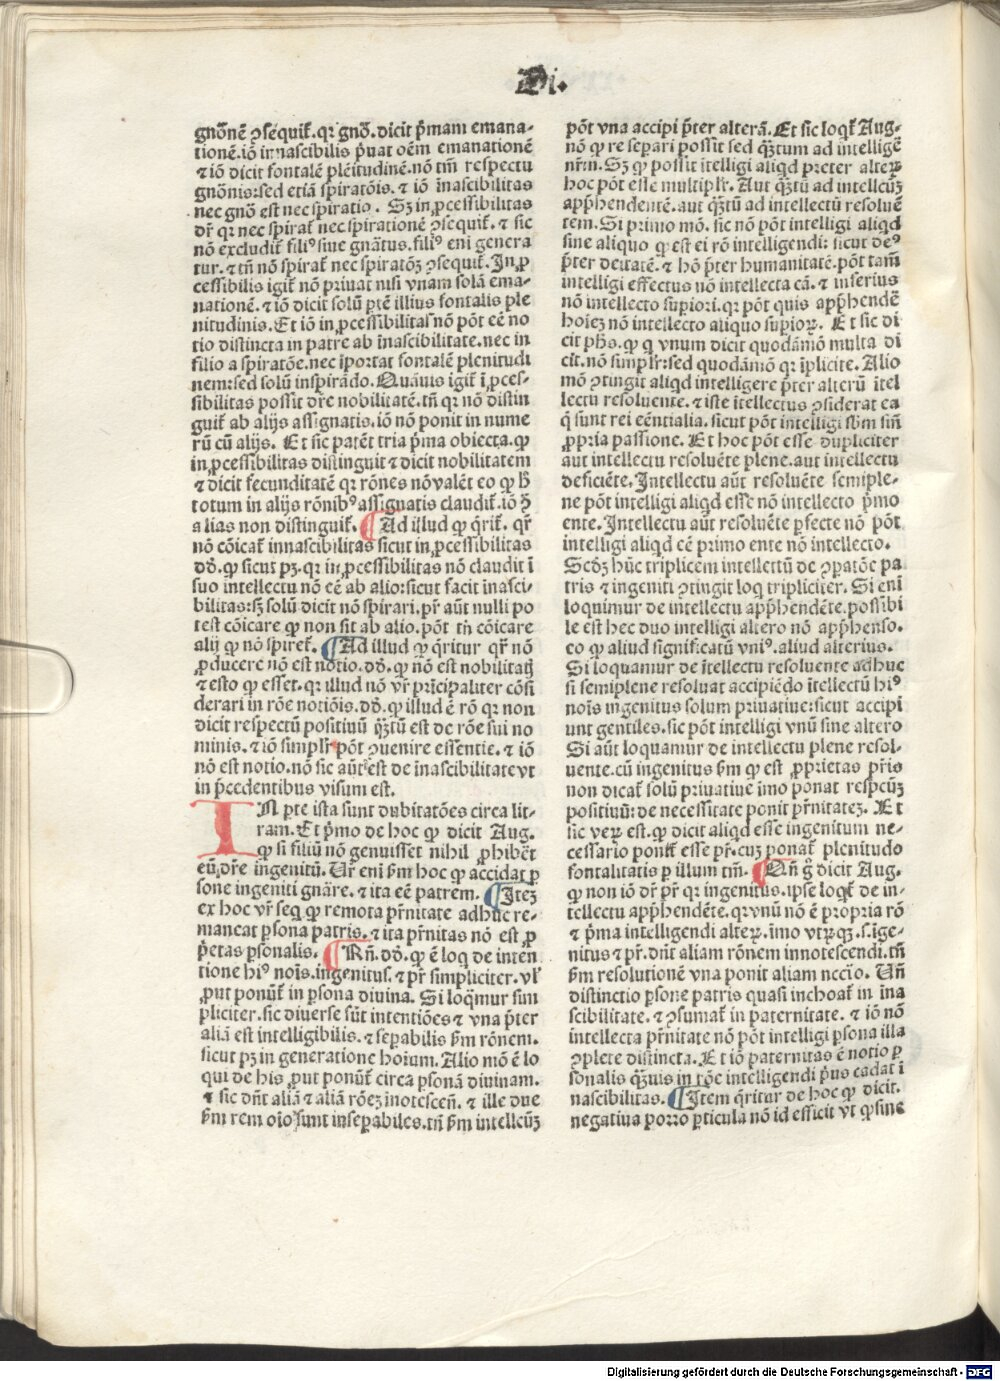 Di.
gnōnē ꝯsequit̄. qꝛ gnō. dicit p̄mam emana-
tionē. iō innascibilis p̄uat oēm emanationē
⁊ iō dicit fontalē plēitudinē. nō tm̄ respectu
gnōnis: sed etiā spiratōis. ⁊ iō īnascibilitas
nec gnō est nec spiratio. Sꝫ in ꝓcessibilitas
dr̄ qꝛ nec spirat̄ nec spirationē ꝯsequit̄. ⁊ sic
nō excludit̄ filiꝰ siue gnātus. filiꝰ eni genera
tur. ⁊ tn̄ nō spirat̄ nec spiratōꝫ ꝯsequit̄. In ꝓ
cessibilis igit̄ nō priuat nisi vnam solā ema-
nationē. ⁊ iō dicit solū ꝑtē illius fontalis ple
nitudinis. Et iō in ꝓcessibilitas nō pōt eē no
tio distincta in patre ab īnascibilitate. nec in
filio a spiratōe. nec īportat fontalē plenitudi
nem: sed solū inspirādo. Quāuis igit̄ ī ꝓces-
sibilitas possit dr̄e nobilitatē. tn̄ qꝛ nō distin
guit̄ ab alijs assignatis. iō nō ponit in nume
rū cū alijs. Et sic patēt tria p̄ma obiecta. ꝙ
in ꝓcessibilitas distinguit ⁊ dicit nobilitatem
⁊ dicit fecunditatē qꝛ rōnes nō valēt eo ꝙ h̄
totum in alijs rōnibꝰ assignatis claudit̄. iō ꝗ̄
alias non distinguit̄. ¶ Ad illud ꝙ q̄rit̄. qr̄
nō cōicat̄ innascibilitas sicut in ꝓcessibilitas
dō. ꝙ sicut pꝫ. qꝛ in ꝓcessibilitas nō claudit ī
suo intellectu nō eē ab alio: sicut facit inasci-
bilitas: sꝫ solū dicit nō spirari. pr̄ aūt nulli po
test cōicare ꝙ non sit ab alio. pōt tn̄ cōicare
alij ꝙ nō spiret̄. ¶ Ad illud ꝙ q̄ritur qr̄ nō
ꝓducere nō est notio. dō. ꝙ nō est nobilitatꝭ
⁊ esto ꝙ esset. qꝛ illud nō vr̄ prīcipaliter cōsi
derari in rōe notiōis. dō. ꝙ illud ē rō qꝛ non
dicit respectū positiuū qꝫtū est de rōe sui no
minis. ⁊ iō simplr̄ pōt ꝯuenire essentie. ⁊ iō
nō est notio. nō sic aūt est de īnascibilitate vt
in p̄cedentibus visum est.
IN ꝑte ista sunt dubitatōes circa lit-
ram. Et p̄mo de hoc ꝙ dicit Aug.
ꝙ si filiū nō genuisset nihil ꝓhibēt
eū dr̄e ingenitū. Vr̄ eni ẜm hoc ꝙ accidat ꝑ
sone ingeniti gnāre. ⁊ ita eē patrem. ¶ Iteꝫ
ex hoc vr̄ seq̄ ꝙ remota pr̄nitate adhuc re-
maneat ꝑsona patris. ⁊ ita pr̄nitas nō est ꝓ
p̄etas ꝑsonalis. ¶ Rn̄. dō. ꝙ ē loq̄ de inten
tione hiꝰ nois. ingenitus. ⁊ pr̄ simpliciter. vl̓
ꝓut ponūt̄ in ꝑsona diuina. Si loq̄mur sim
pliciter. sic diuerse sūt intentiōes ⁊ vna p̄ter
aliā est intelligibilis. ⁊ seꝑabilis ẜm rōnem.
sicut pꝫ in generatione hoium. Alio mō ē lo
qui de his ꝓut ponūt̄ circa ꝑsonā diuinam.
⁊ sic dn̄t aliā ⁊ aliā rōeꝫ īnotescen̄. ⁊ ille due
ẜm rem oīo sunt inseꝑabiles. tn̄ ẜm intellcūꝫ
pōt vna accipi p̄ter alterā. Et sic loqt̄ Aug-
nō ꝙ re seꝑari possit sed qꝫtum ad intelligē
nr̄m. Sꝫ ꝙ possit ītelligi aliqd preter alteꝝ
hoc pōt esse multiplr̄. Aut qꝫtū ad intellcūꝫ
app̄hendentē. aut qꝫtū ad intellectū resoluē
tem. Si primo mō. sic nō pōt intelligi aliqd
sine aliquo ꝙ est ei rō intelligendi: sicut deꝰ
p̄ter deitatē. ⁊ hō p̄ter humanitatē. pōt tam̄
intelligi effectus nō intellecta cā. ⁊ inferius
nō intellecto suꝑiori. qꝛ pōt quis app̄hendē
hoieꝫ nō intellecto aliquo suꝑioꝝ. Et sic di
cit ph̄s. ꝙ q vnum dicit quodāmō multa di
cit. nō simplr̄: sed quodāmō qꝛ īplicite. Alio
mō ꝯtingit aliqd intelligere p̄ter alterū ītel
lectu resoluente. ⁊ iste ītellectus ꝯsiderat ea
q̄ sunt rei eēntialia. sicut pōt intelligi sb̄m sin̄
ꝓpria passione. Et hoc pōt esse dupliciter
aut intellectu resoluēte plene. aut intellectu
deficiēte. Intellectu aūt resoluēte semiple-
ne pōt intelligi aliqd esse nō intellecto p̄mo
ente. Intellectu aūt resoluēte ꝑfecte nō pōt
intelligi aliqd eē primo ente nō intellecto.
Scdꝫ hūc triplicem intellectū de ꝯꝑatōe pa
tris ⁊ ingeniti ꝯtingit loq tripliciter. Si enī
loquimur de intellectu app̄hendēte. possibi
le est hec duo intelligi altero nō app̄henso.
eo ꝙ aliud significatū vniꝰ. aliud alterius.
Si loquamur de ītellectu resoluente adhuc
si semiplene resoluat accipiēdo ītellectū hiꝰ
nois ingenitus solum priuatiue: sicut accipi
unt gentiles. sic pōt intelligi vnū sine altero
Si aūt loquamur de intellectu plene resol-
uente. cū ingenitus ẜm ꝙ est ꝓprietas pr̄is
non dicat̄ solū priuatiue īmo ponat respcūꝫ
positiuū: de necessitate ponit pr̄nitateꝫ. Et
sic veꝝ est. ꝙ dicit aliqd esse ingenitum ne-
cessario ponit̄ esse pr̄. cuꝫ ponat̄ plenitudo
fontalitatis ꝑ illum tm̄. ¶ Qn̄ g̊ dicit Aug.
ꝙ non iō dr̄ pr̄ qꝛ ingenitus. ipse loqt̄ de in-
tellectu app̄hendēte. qꝛ vnū nō ē propria rō
⁊ p̄ma intelligendi alteꝝ. īmo vtꝝqꝫ. s. īge-
nitus ⁊ pr̄. dn̄t aliam rōnem innotescendi. tn̄
ẜm resolutionē vna ponit aliam nccio. Un̄
distinctio ꝑsone patris quasi inchoat̄ in īna
scibilitate. ⁊ ꝯsumat̄ in paternitate. ⁊ iō nō
intellecta pr̄nitate nō pōt intelligi ꝑsona illa
ꝯplete distincta. Et iō paternitas ē notio ꝑ
sonalis qꝫuis in rōe intelligendi p̄us cadat ī
nascibilitas. ¶ Item q̄ritur de hoc ꝙ dicit.
negatiua porro ꝑticula nō id efficit vt ꝙ sine
Digitalisierung gefördert durch die Deutsche Forschungsgemeinschaft - DFG